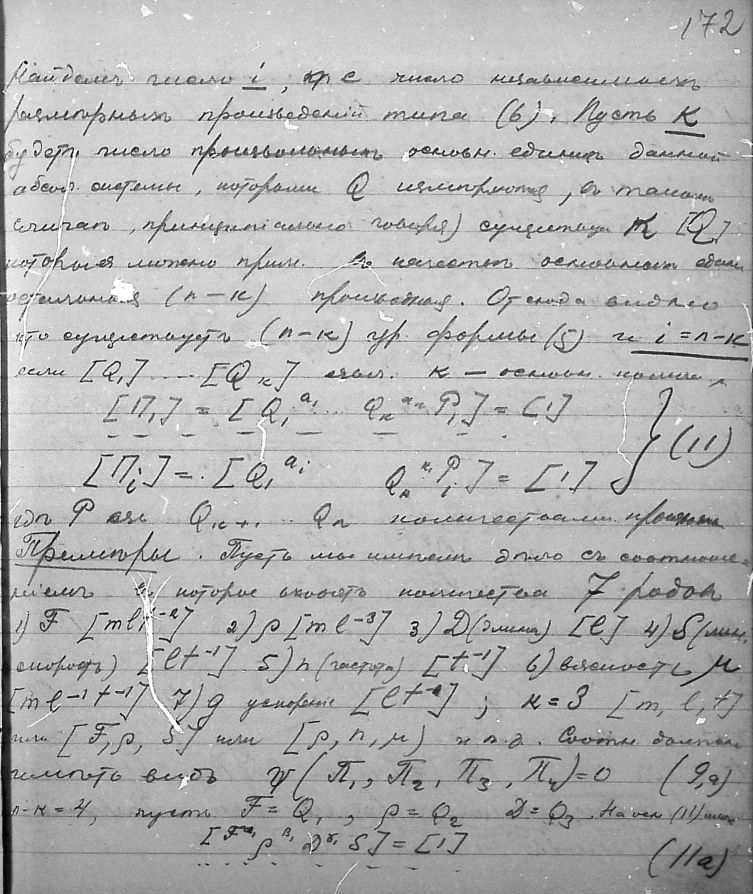 172
Найдемъ число i, т. е. число независимыхъ
размѣрныхъ произведенiй типа (6). Пусть К
будетъ число произвольныхъ основн. единицъ данной
абсол. системы, которыми Q измѣряются, въ такомъ
случаѣ, принципiально говоря) существуетъ К [Q]
которыя можно прин. въ качествѣ основныхъ един
остальныя (n-к) производныя. Отсюда видно
что существуетъ (n-к) ур. формы (5) и i = n-к
если [Q₁] .... [Qк] к - основн.
[П₁] = [Q₁^a₁ ... Qк^κ₁ P₁] = [1]
} (11)
[Пi] = [Q₁^ai Qк^κi Pi] = [1]
гдѣ P Qк+1 .. Qn количествами
Примѣры. Пусть мы имѣемъ дѣло съ соотноше-
нiемъ въ которое входятъ количества 7 родовъ
1) F [mlt⁻²] 2) ρ [ml⁻³] 3) D (длина) [l] 4) S (лин.
скорость) [lt⁻¹] 5) n (частота) [t⁻¹] 6) вязкость μ
[ml⁻¹t⁻¹] 7) g ускоренiе [lt⁻²]; к=3 [m, l, t]
или [F, ρ, S] или [ρ, n, μ] и т.д. Соотн. должно
имѣть видъ ψ(П₁, П₂, П₃, П₄)=0 (9,а)
n-к=4, пусть F=Q₁, ρ=Q₂ D=Q₃. На осн (11)
[F^α₁ ρ^β₁ D^γ₁ S] = [1]
(11a)